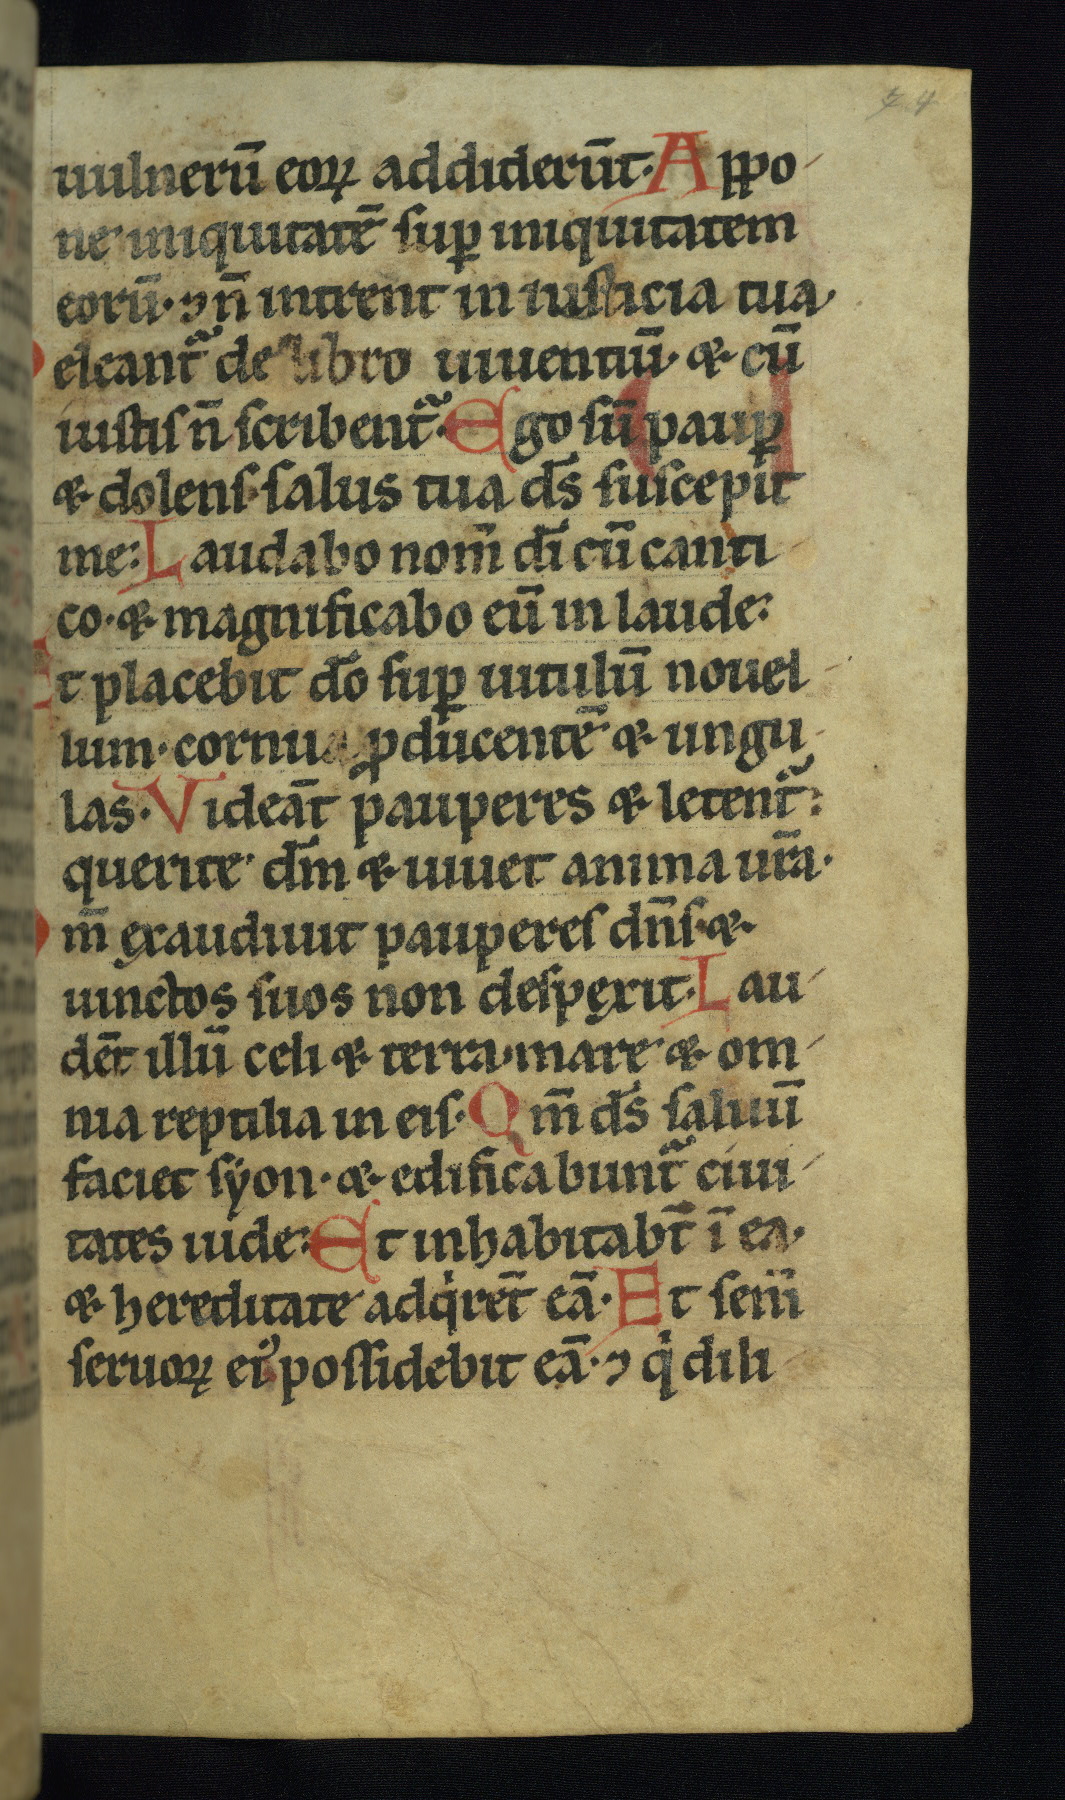 74
uulnerū eoꝝ addiderūt. Appo
ne iniquitatē suꝑ iniquitatem
eorū. ⁊ n̄ intrent in iusticia tua.
eleant᷑ de libro uiuentiū. & cū
iustis n̄ scribent᷑. Ego sū pauꝑ
& dolens salus tua ds̄ suscepit
me: Laudabo nom̄ dī cū canti
co. & magnificabo eū in laude:
Et placebit dō suꝑ uitulū nouel
lum. cornua ꝓducentē & ungu
las. Videāt pauperes & letent᷑:
querite dm̄ & uiuet anima ur̄a.
m̄ exaudiuit pauperes dn̄s. &
uinctos suos non despexit. Lau
dēt illū celi & terra. mare & om
nia reptilia in eis. Qm̄ ds̄ saluū
faciet syon. & edificabunt᷑ ciui
tates iude: Et inhabitabt̄ ī ea.
& hereditate adqͥrēt eā. Et sem̄
seruoꝝ eiꝰ possidebit eā. ⁊ qͥ dili